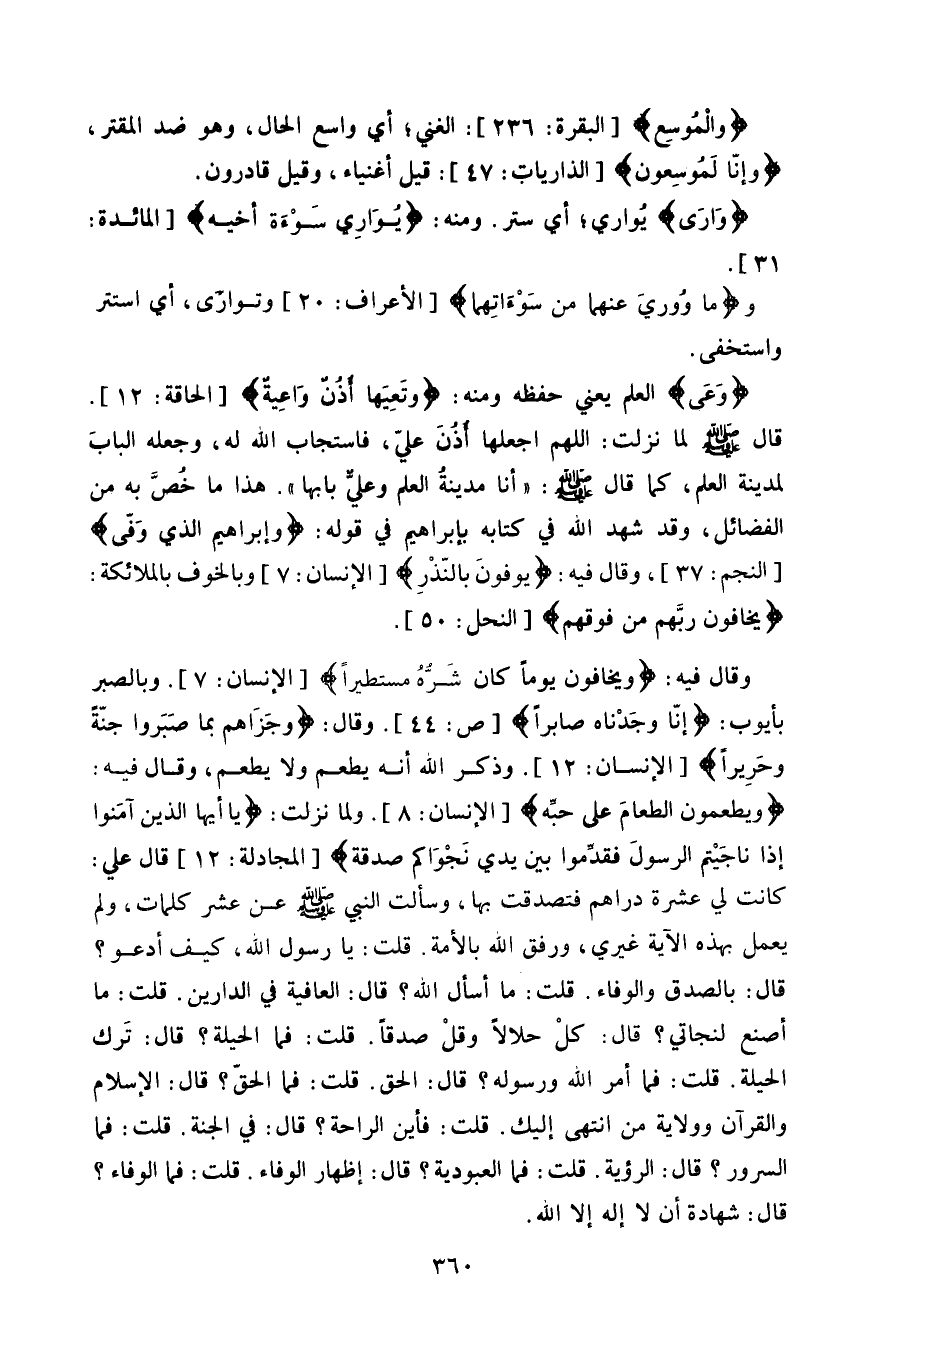 ﴿والْمُوسِع﴾ [البقرة: ٢٣٦]: الغني؛ أي واسع الحال، وهو ضد المقتر،
﴿وإنّا لَمُوسِعون﴾ [الذاريات: ٤٧]: قيل أغنياء، وقيل قادرون.
﴿وَارَى﴾ يُواري؛ أي ستر. ومنه: ﴿يُـوَارِي سَـوْءَة أخيـه﴾ [المائـدة:
٣١].
و ﴿ما وُورِيَ عنهما من سَوْءَاتِهما﴾ [الأعراف: ٢٠] وتـوارّى، أي استتر
واستخفى.
﴿وَعَى﴾ العلم يعني حفظه ومنه: ﴿وتَعِيَها أُذُنٌ وَاعِيةٌ﴾ [الحاقة: ١٢].
قال ﷺ لما نزلت: اللهم اجعلها أُذُنَ عليّ، فاستجاب الله له، وجعله البابَ
لمدينة العلم، كما قال ﷺ: «أنا مدينةُ العلم وعليٌّ بابها». هذا ما خُصَّ به من
الفضائل، وقد شهد الله في كتابه بإبراهيم في قوله: ﴿وإبراهيم الذي وَفّى﴾
[النجم: ٣٧]، وقال فيه: ﴿يوفونَ بالنّذْرِ﴾ [الإنسان: ٧] وبالخوف بالملائكة:
﴿يخافون ربَّهم من فوقهم﴾ [النحل: ٥٠].
وقال فيه: ﴿ويخافون يوماً كان شَـرُّهُ مستطيراً﴾ [الإنسان: ٧]. وبالصبر
بأيوب: ﴿إنّا وجَدْناه صابراً﴾ [ص: ٤٤]. وقال: ﴿وجَزَاهم بما صَبَروا جنّةً
وحَرِيراً﴾ [الإنسـان: ١٢]. وذكـر الله أنـه يطعـم ولا يطعـم، وقـال فيـه:
﴿ويطعمون الطعامَ على حبِّه﴾ [الإنسان: ٨]. ولما نزلت: ﴿يا أيها الذين آمَنوا
إذا ناجَيْتم الرسولَ فقدِّموا بين يدي نَجْوَاكم صدقة﴾ [المجادلة: ١٢] قال علي:
كانت لي عشرة دراهم فتصدقت بها، وسألت النبي ﷺ عـن عشر كلمات، ولم
يعمل بهذه الآية غيري، ورفق الله بالأمة. قلت: يا رسول الله، كيـف أدعـو؟
قال: بالصدق والوفاء. قلت: ما أسأل الله؟ قال: العافية في الدارين. قلت: ما
أصنع لنجاتي؟ قال: كلْ حلالاً وقلْ صدقاً. قلت: فما الحيلة؟ قال: تَرك
الحيلة. قلت: فما أمر الله ورسوله؟ قال: الحق. قلت: فما الحقّ؟ قال: الإسلام
والقرآن وولاية من انتهى إليك. قلت: فأين الراحة؟ قال: في الجنة. قلت: فما
السرور؟ قال: الرؤية. قلت: فما العبودية؟ قال: إظهار الوفاء. قلت: فما الوفاء؟
قال: شهادة أن لا إله إلا الله.
٣٦٠